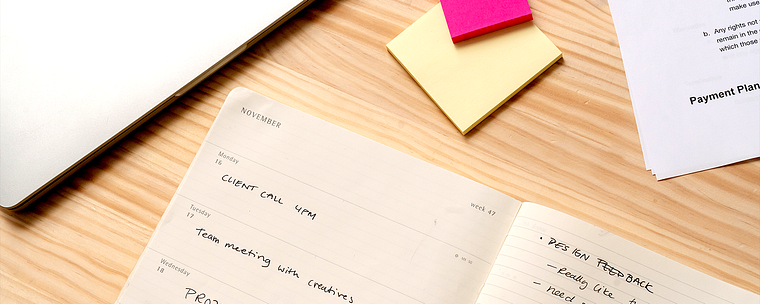 NOVEMBER
Monday
16
CLIENT CALL 4PM
Tuesday
17
Team meeting with creatives
Wednesday
18
week 47
• DESIGN FEEDBACK
– Really like
– need
make use
b. Any rights not
remain in the
which those
Payment Plan